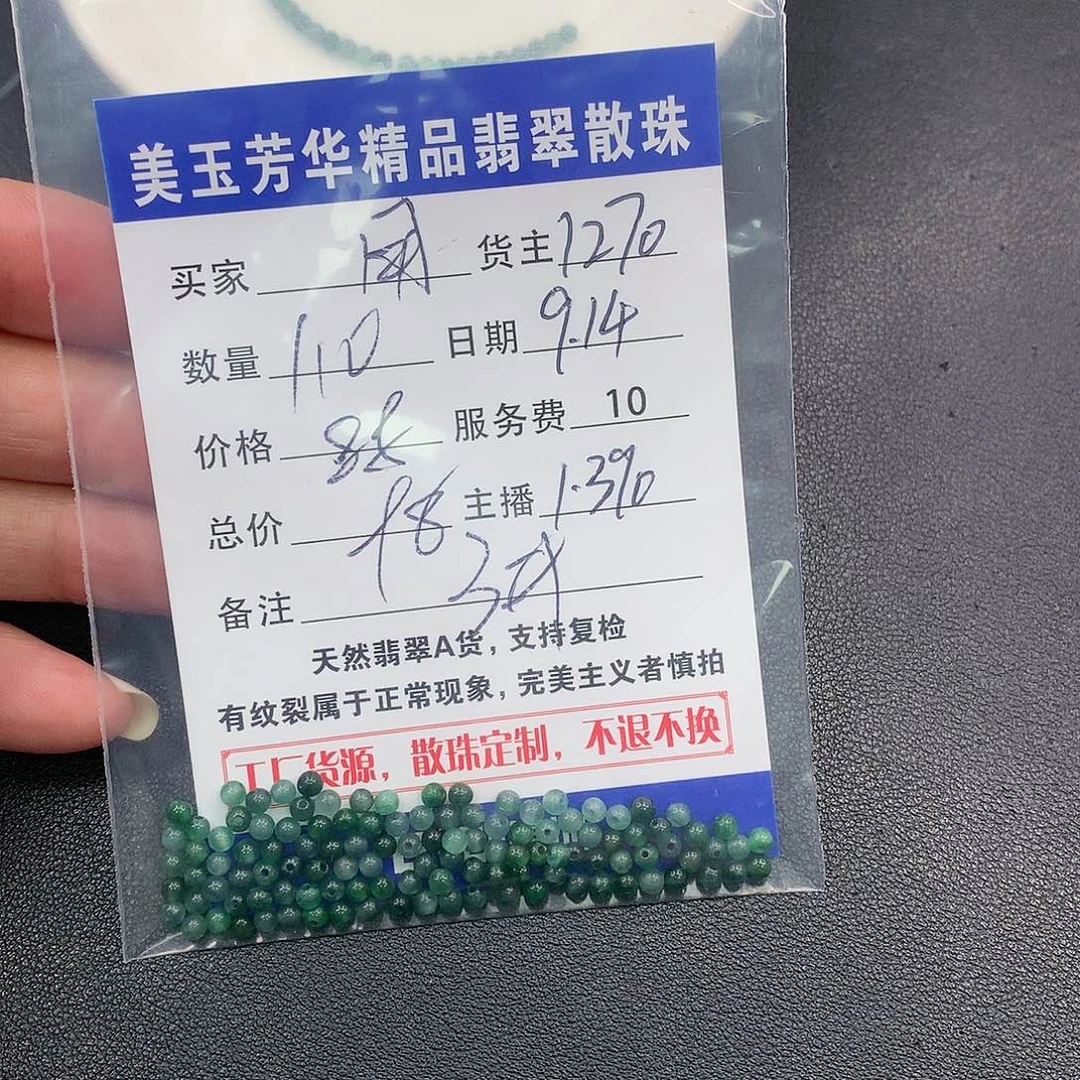 美玉芳华精品翡翠散珠
买家 货主 1270
数量 110 日期 9.14
价格 88 服务费 10
总价 98 主播 1.390
备注
天然翡翠A货，支持复检
有纹裂属于正常现象，完美主义者慎拍
工厂货源，散珠定制，不退不换